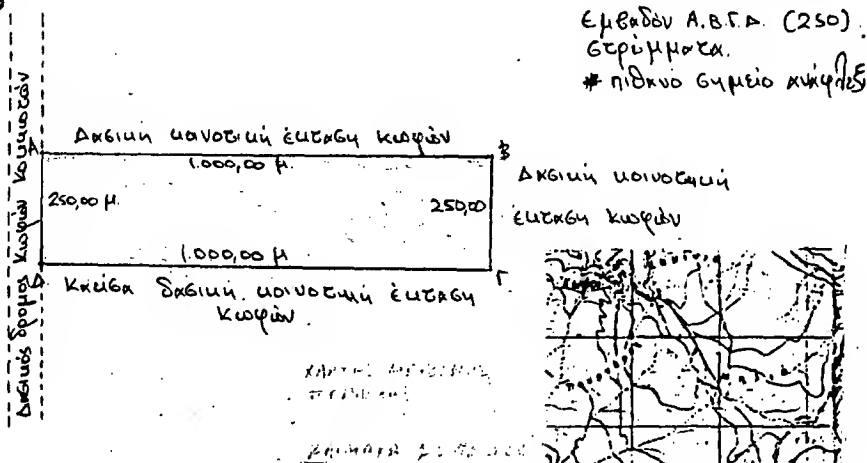 Εμβαδόν Α.Β.Γ.Δ. (250)
στρέμματα.
* πιθανό σημείο ανάφλεξ
Δασικός δρόμος Κωφών Κοκκωτών
Δασική κοινοτική έκταση Κωφών
Α
Β
1.000,00 μ.
250,00 μ.
250,00
Δασική κοινοτική
έκταση Κωφών
1.000,00 μ
Δ
Γ
Καείσα δασική κοινοτική έκταση
Κωφών.